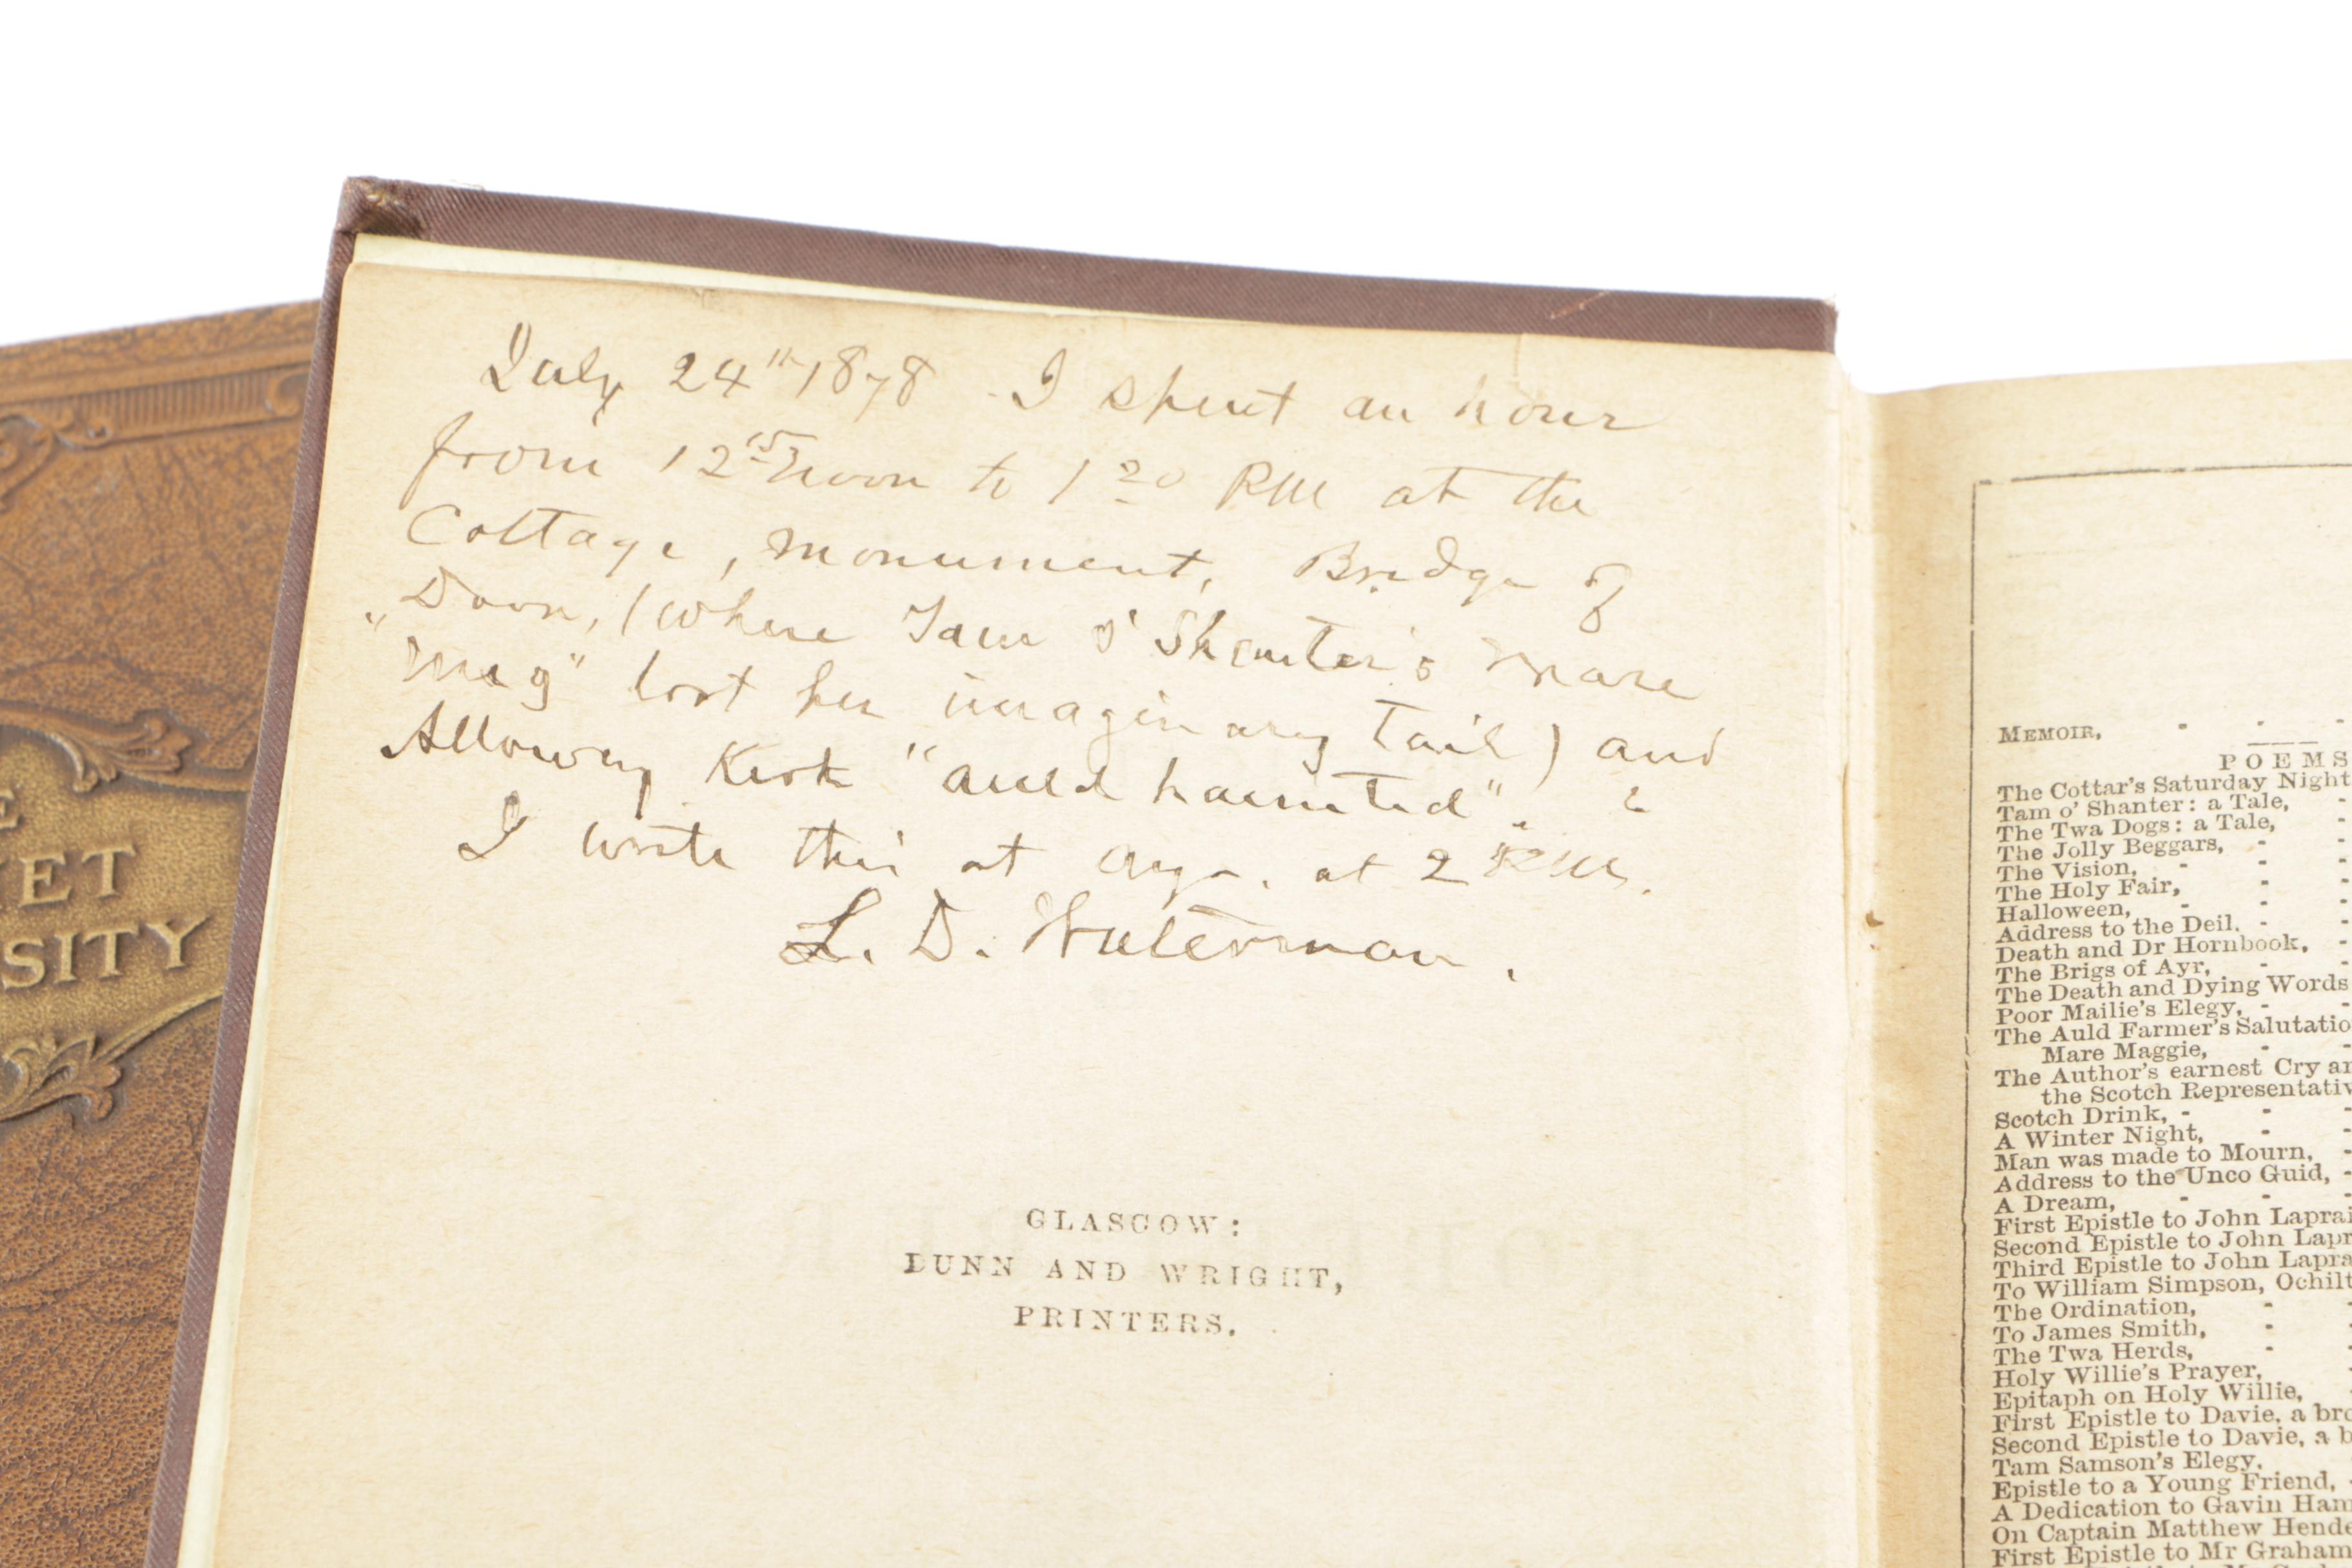 July 24th 1878 I spent an hour
from 12 15 noon to 1 20 P.M. at the
Cottage, monument, Bridge of
Doon, (where Tam O'Shanter's mare
"Meg" lost her imaginary tail) and
Alloway Kirk "auld haunted".
I write this at Ayr. at 2 P.M.
L. D. Waterman.
GLASGOW:
DUNN AND WRIGHT,
PRINTERS.
MEMOIR, - - -
POEMS
The Cottar's Saturday Night
Tam o' Shanter: a Tale, -
The Twa Dogs: a Tale, -
The Jolly Beggars, - -
The Vision, - -
The Holy Fair, - -
Halloween, - - -
Address to the Deil, - -
Death and Dr Hornbook, -
The Brigs of Ayr, - -
The Death and Dying Words
Poor Mailie's Elegy, - -
The Auld Farmer's Salutatio
Mare Maggie, - -
The Author's earnest Cry an
the Scotch Representativ
Scotch Drink, - - -
A Winter Night, - -
Man was made to Mourn, -
Address to the Unco Guid, -
A Dream, - - -
First Epistle to John Laprai
Second Epistle to John Lapr
Third Epistle to John Lapra
To William Simpson, Ochilt
The Ordination, - -
To James Smith, - -
The Twa Herds, - -
Holy Willie's Prayer, -
Epitaph on Holy Willie, -
First Epistle to Davie, a bro
Second Epistle to Davie, a b
Tam Samson's Elegy, -
Epistle to a Young Friend, -
A Dedication to Gavin Ham
On Captain Matthew Hende
First Epistle to Mr Graham
E
KET
SITY